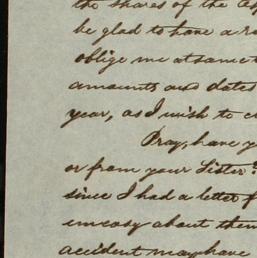 the shares of the
be glad to have a
oblige me at same
amounts and dates
year, as I wish to
Pray, have
or from your Sister?
since I had a letter
uneasy about them
accident may have